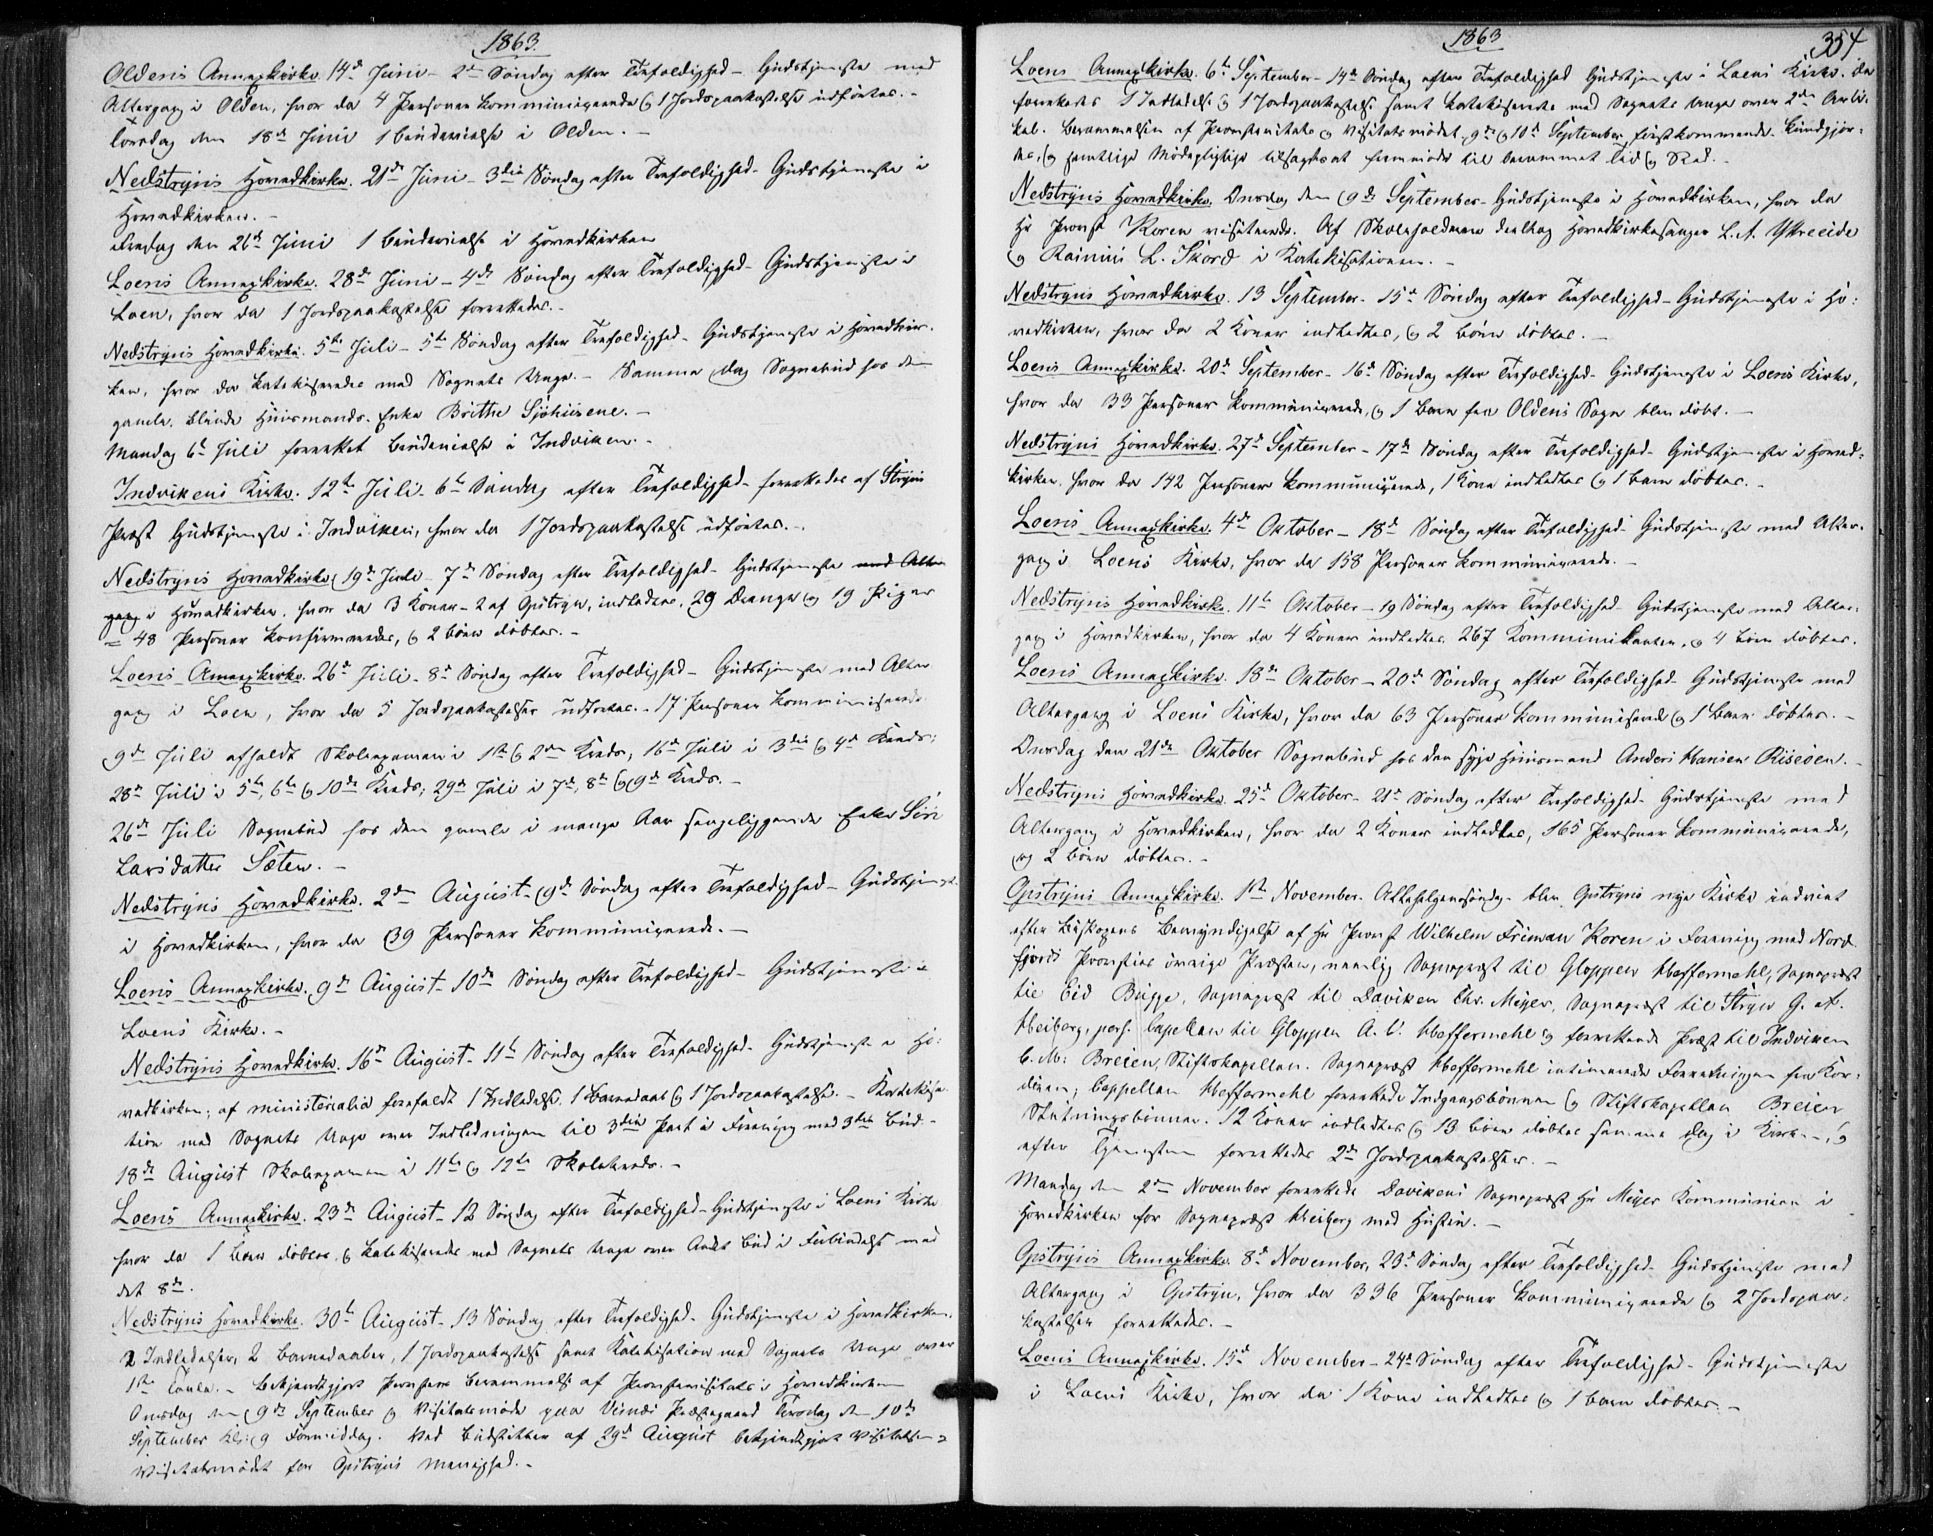 1863.
Oldens Annexkirke. 14de Juni - 2den Søndag efter Trefoldighed - Gudstjeneste med
Altergang i Olden, hvor da 4 Personer kommunicerede og 1 Jordpaakastelse udførtes. -
Torsdag den 18de Juni 1 Brudevielse i Olden. -
Nedstryns Hovedkirke. 21de Juni - 3die Søndag efter Trefoldighed - Gudstjeneste i
Hovedkirken. -
Fredag den 26de Juni 1 Brudevielse i Hovedkirken
Loens Annexkirke. 28de Juni - 4de Søndag efter Trefoldighed - Gudstjeneste i
Loen, hvor da 1 Jordpaakastelse forrettedes. -
Nedstryns Hovedkirke. 5te Juli - 5te Søndag efter Trefoldighed - Gudstjeneste i Hovedkir-
ken, hvor da katekiseredes med Sognets Unge. - Samme Dag Sognebud hos den
gamle, blinde Huusmands-Enke Brithe Sjøhusene. -
Mandag 6te Juli forrettet Brudevielse i Indviken. -
Indvikens Kirke. 12te Juli - 6te Søndag efter Trefoldighed - forrettedes af Stryns
Præst Gudstjeneste i Indviken, hvor da 1 Jordpaakastelse udførtes. -
Nedstryns Hovedkirke 19de Juli - 7de Søndag efter Trefoldighed - Gudstjeneste med Alter-
gang i Hovedkirken, hvor da 3 Koner - 2 af Opstryn, indledtes, 29 Drenge og 19 Piger
= 48 Personer konfirmeredes, og 2 Børn døbtes. -
Loens Annexkirke. 26de Juli - 8de Søndag efter Trefoldighed - Gudstjeneste med Alter
gang i Loen, hvor da 5 Jordpaakastelser udførtes. - 17 Personer kommunicerede
9de Juli afholdt Skoleexamen i 1ste og 2den Kreds; 16de Juli i 3die og 4de Kreds;
28de Juli i 5te, 6te og 10de Kreds; 29de Juli i 7de, 8de og 9de Kreds. -
26de Juli Sognebud hos den gamle i mange Aar sengeliggende Enke Siri
Larsdatter Sæten. -
Nedstryns Hovedkirke. 2den August - 9de Søndag efter Trefoldighed - Gudstjeneste
i Hovedkirken, hvor da 39 Personer kommunicerede. -
Loens Annexkirke. 9de August - 10de Søndag efter Trefoldighed - Gudstjeneste i
Loens Kirke. -
Nedstryns Hovedkirke. 16de August - 11te Søndag efter Trefoldighed - Gudstjeneste i Ho-
vedkirken; af ministerialia forefaldt 1 Indledelse, 1 Barnedaab og 1 Jordpaakastelse. - Katekisa
tion med Sognets Unge over Indledningen til 3die Part i Forening med 3die Bud. -
18de August Skoleexamen i 11te og 12te Skolekreds. -
Loens Annexkirke. 23de August - 12 Søndag efter Trefoldighed - Gudstjeneste i Loens Kirke
hvor da 1 Barn døbtes og katekiseredes med Sognets Unge over Andet Bud i Forbindelse med
det 8de.
Nedstryns Hovedkirke. 30te August - 13 Søndag efter Trefoldighed - Gudstjeneste i Hovedkirken.
2 Indledelser, 2 Barnedaaber, 1 Jordpaakastelse samt Katekisation med Sognets Unge over
1ste Tavle. - Bekjendtgjort Provstens Berammelse af Provstevisitats i Hovedkirken
Onsdag den 9de September og Visitatsmøde paa Visnæs Præstegaard Torsdag den 10de
September Kl. 9 Formiddag. Ved Budstikken af 29de August bekjendtgjort Visitatsen og
Visitatsmødet for Opstryns Menighed. -
1863
354
Loens Annexkirke. 6te September - 14de Søndag efter Trefoldighed Gudstjeneste i Loens Kirke, da
forrettedes 1 Indledelse og 1 Jordpaakastelse samt katekiseredes med Sognets Unge over 2den Arti-
kel. Berammelsen af Provstevisitats og Visitatsmødet 9de og 10de September førstkommende kundgjør-
des, og samtlige Mødepligtige tilsagdes at fremmøde til berammet Tid og Sted. -
Nedstryns Hovedkirke. Onsdag den 9de September - Gudstjeneste i Hovedkirken, hvor da
Hr Provst Koren visiterede. Af Skoleholderne deeltog Hovedkirkesanger L. A. Ytreeide
og Rasmus L. Skord i Katekisationen. -
Nedstryns Hovedkirke. 13 September - 15de Søndag efter Trefoldighed - Gudstjeneste i Ho-
vedkirken, hvor da 2 Koner indledtes, og 2 Børn døbtes. -
Loens Annexkirke. 20de September - 16de Søndag efter Trefoldighed - Gudstjeneste i Loens Kirke,
hvor da 33 Personer kommunicerede, og 1 Barn fra Oldens Sogn blev døbt. -
Nedstryns Hovedkirke. 27de September - 17de Søndag efter Trefoldighed - Gudstjeneste i Hoved-
kirken, hvor da 142 Personer kommunicerede, 1 Kone indledtes og 1 Barn døbtes. -
Loens Annexkirke. 4de Oktober - 18de Søndag efter Trefoldighed - Gudstjeneste med Alter-
gang i Loens Kirke, hvor da 158 Personer kommunicerede. -
Nedstryns Hovedkirke. 11te Oktober - 19 Søndag efter Trefoldighed - Gudstjeneste med Alter-
gang i Hovedkirken, hvor da 4 Koner indledtes, 267 Kommunikanter, og 4 Børn døbtes.
Loens Annexkirke. 18de Oktober - 20de Søndag efter Trefoldighed - Gudstjeneste med
Altergang i Loens Kirke, hvor da 63 Personer kommunicerede og 1 Barn døbtes. -
Onsdag den 21de Oktober Sognebud hos den syge Huusmand Anders Hansen Riseøen. -
Nedstryns Hovedkirke 25de Oktober - 21de Søndag efter Trefoldighed - Gudstjeneste med
Altergang i Hovedkirken, hvor da 2 Koner indledtes, 165 Personer kommunicerede,
og 2 Børn døbtes. -
Opstryns Annexkirke. 1ste November - Allehelgenssøndag - blev Opstryns nye Kirke indviet
efter Biskopens Bemyndigelse af Hr Provst Wilhelm Friman Koren i Forening med Nord-
fjords Provsties øvrige Præster, nemlig Sognepræst til Gloppen Hoffermehl, Sognepræst
til Eid Bugge, Sognepræst til Daviken Chr. Meyer, Sognepræst til Stryn G. A.
Heiberg, pers. Capellan til Gloppen A. C. Hoffermehl og forrettende Præst til Indviken
C. M. Breien, Stiftskapellan. Sognepræst Hoffermehl intimerede Forretningen fra Kor-
døren; Cappellan Hoffermehl forrettede Indgangsbønnen og Stiftskapellan Breien
Slutningsbønnen. 12 Koner indledtes og 13 Børn døbtes samme Dag i Kirken, og
efter Tjenesten forrettedes 2de Jordpaakastelser. -
Mandag den 2den November forrettede Davikens Sognepræst Hr Meyer Kommunion i
Hovedkirken for Sognepræst Heiberg med Hustru. -
Opstryns Annexkirke. 8de November, 23de Søndag efter Trefoldighed - Gudstjeneste med
Altergang i Opstryn, hvor da 336 Personer kommunicerede og 2 Jordpaa-
kastelser forrettedes. -
Loens Annexkirke. 15de November - 24de Søndag efter Trefoldighed - Gudstjeneste
i Loens Kirke, hvor da 1 Kone indledtes og 1 Barn døbtes. -